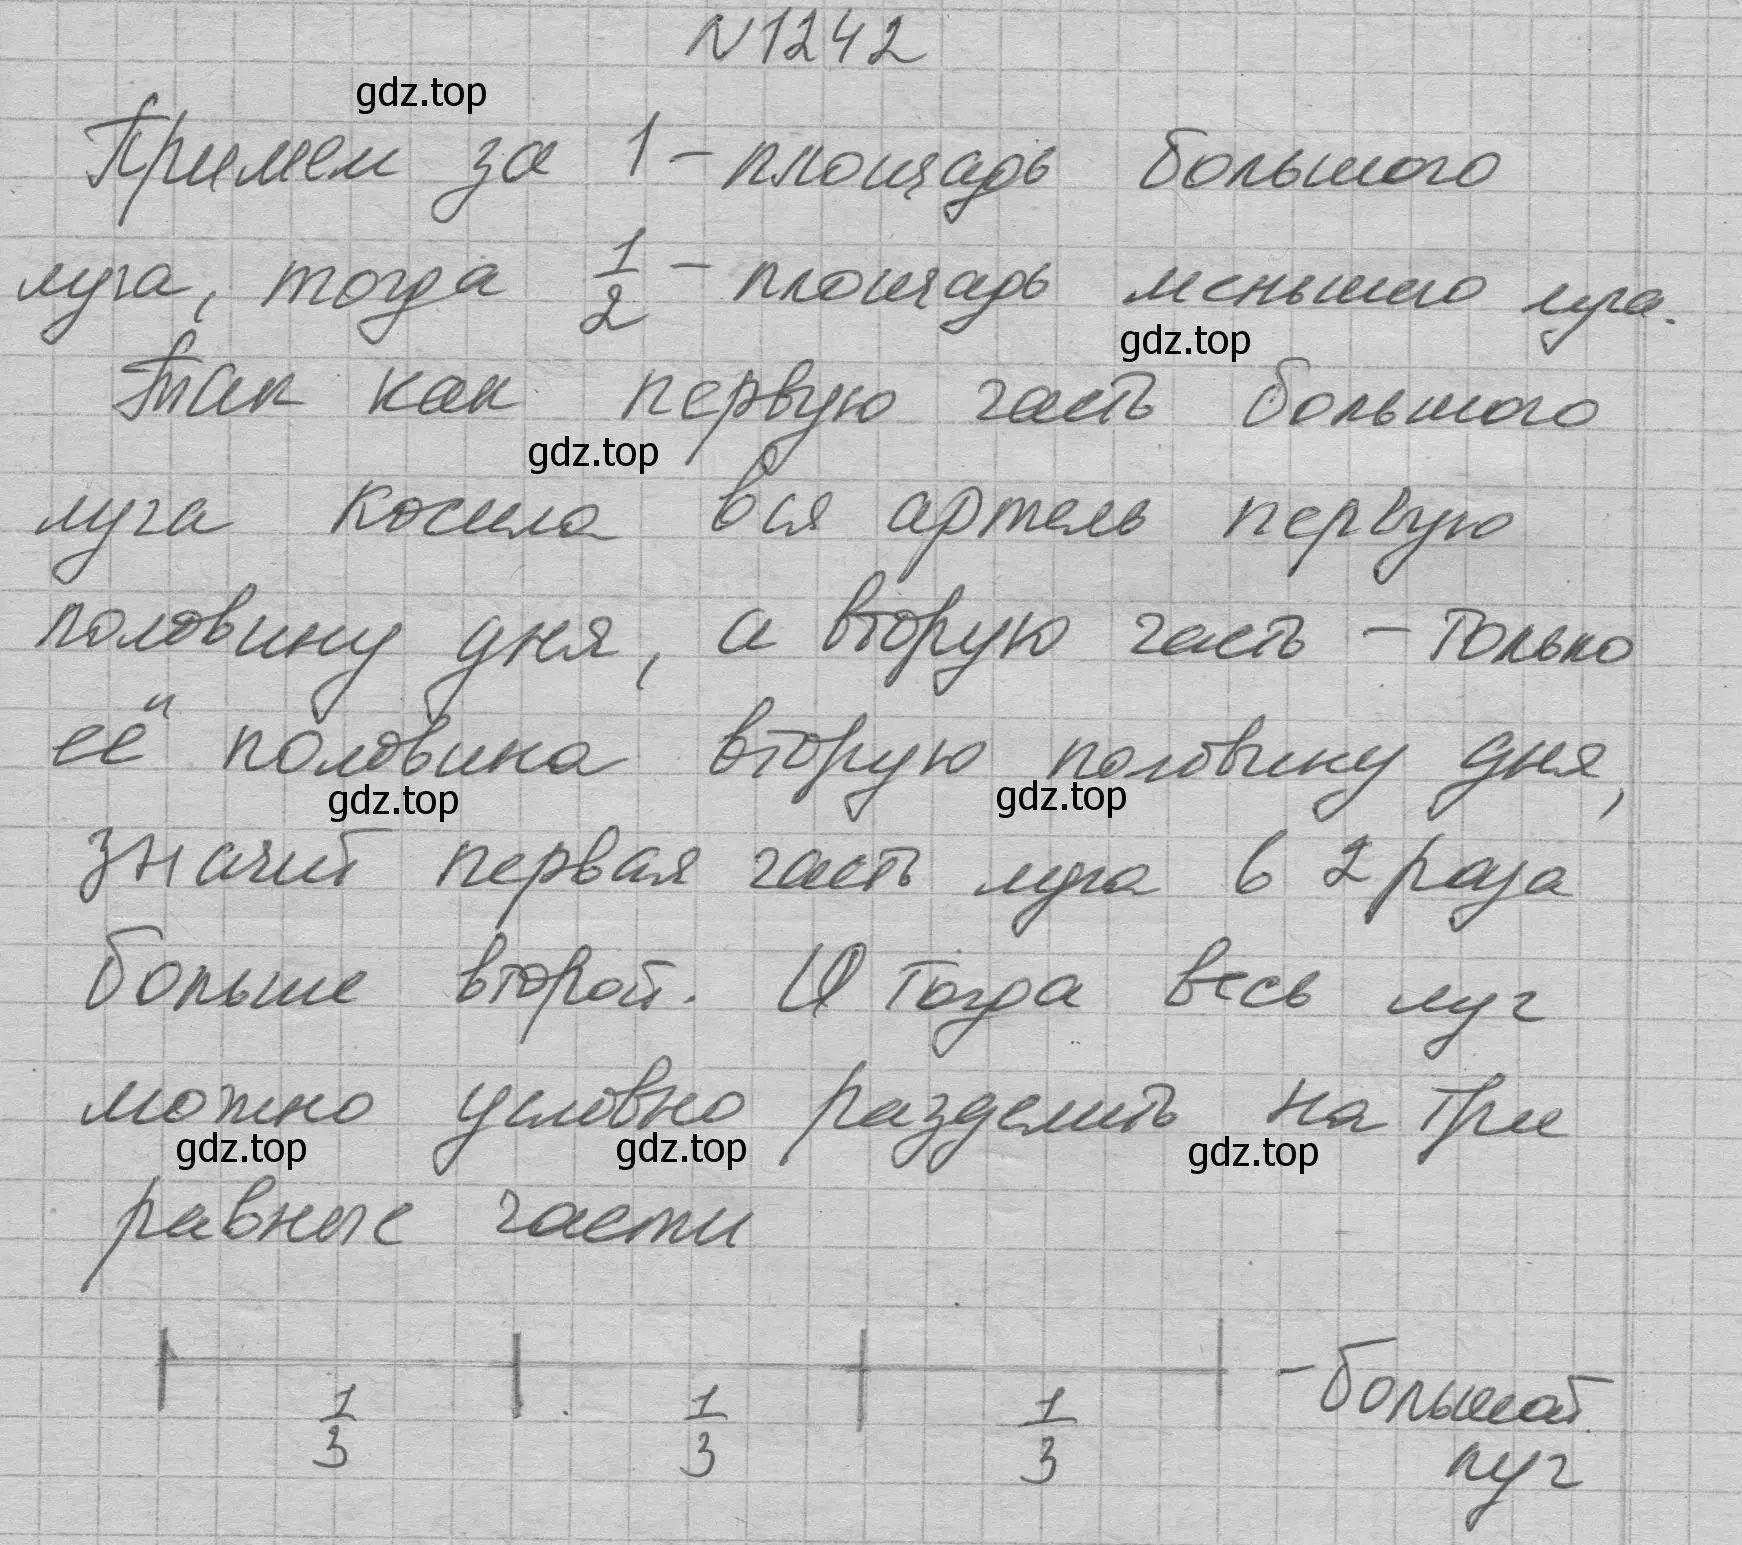 N1242
gdz.top
Примем за 1 – площадь большого
луга, тогда 1/2 – площадь меньшего луга.
gdz.top
Так как первую часть большого
gdz.top
луга косила вся артель первую
половину дня, а вторую часть – только
её половина вторую половину дня,
gdz.top gdz.top
значит первая часть луга в 2 раза
больше второй. Тогда весь луг
можно условно разделить на три
gdz.top gdz.top gdz.top
равные части
1/3 1/3 1/3 – большой
луг